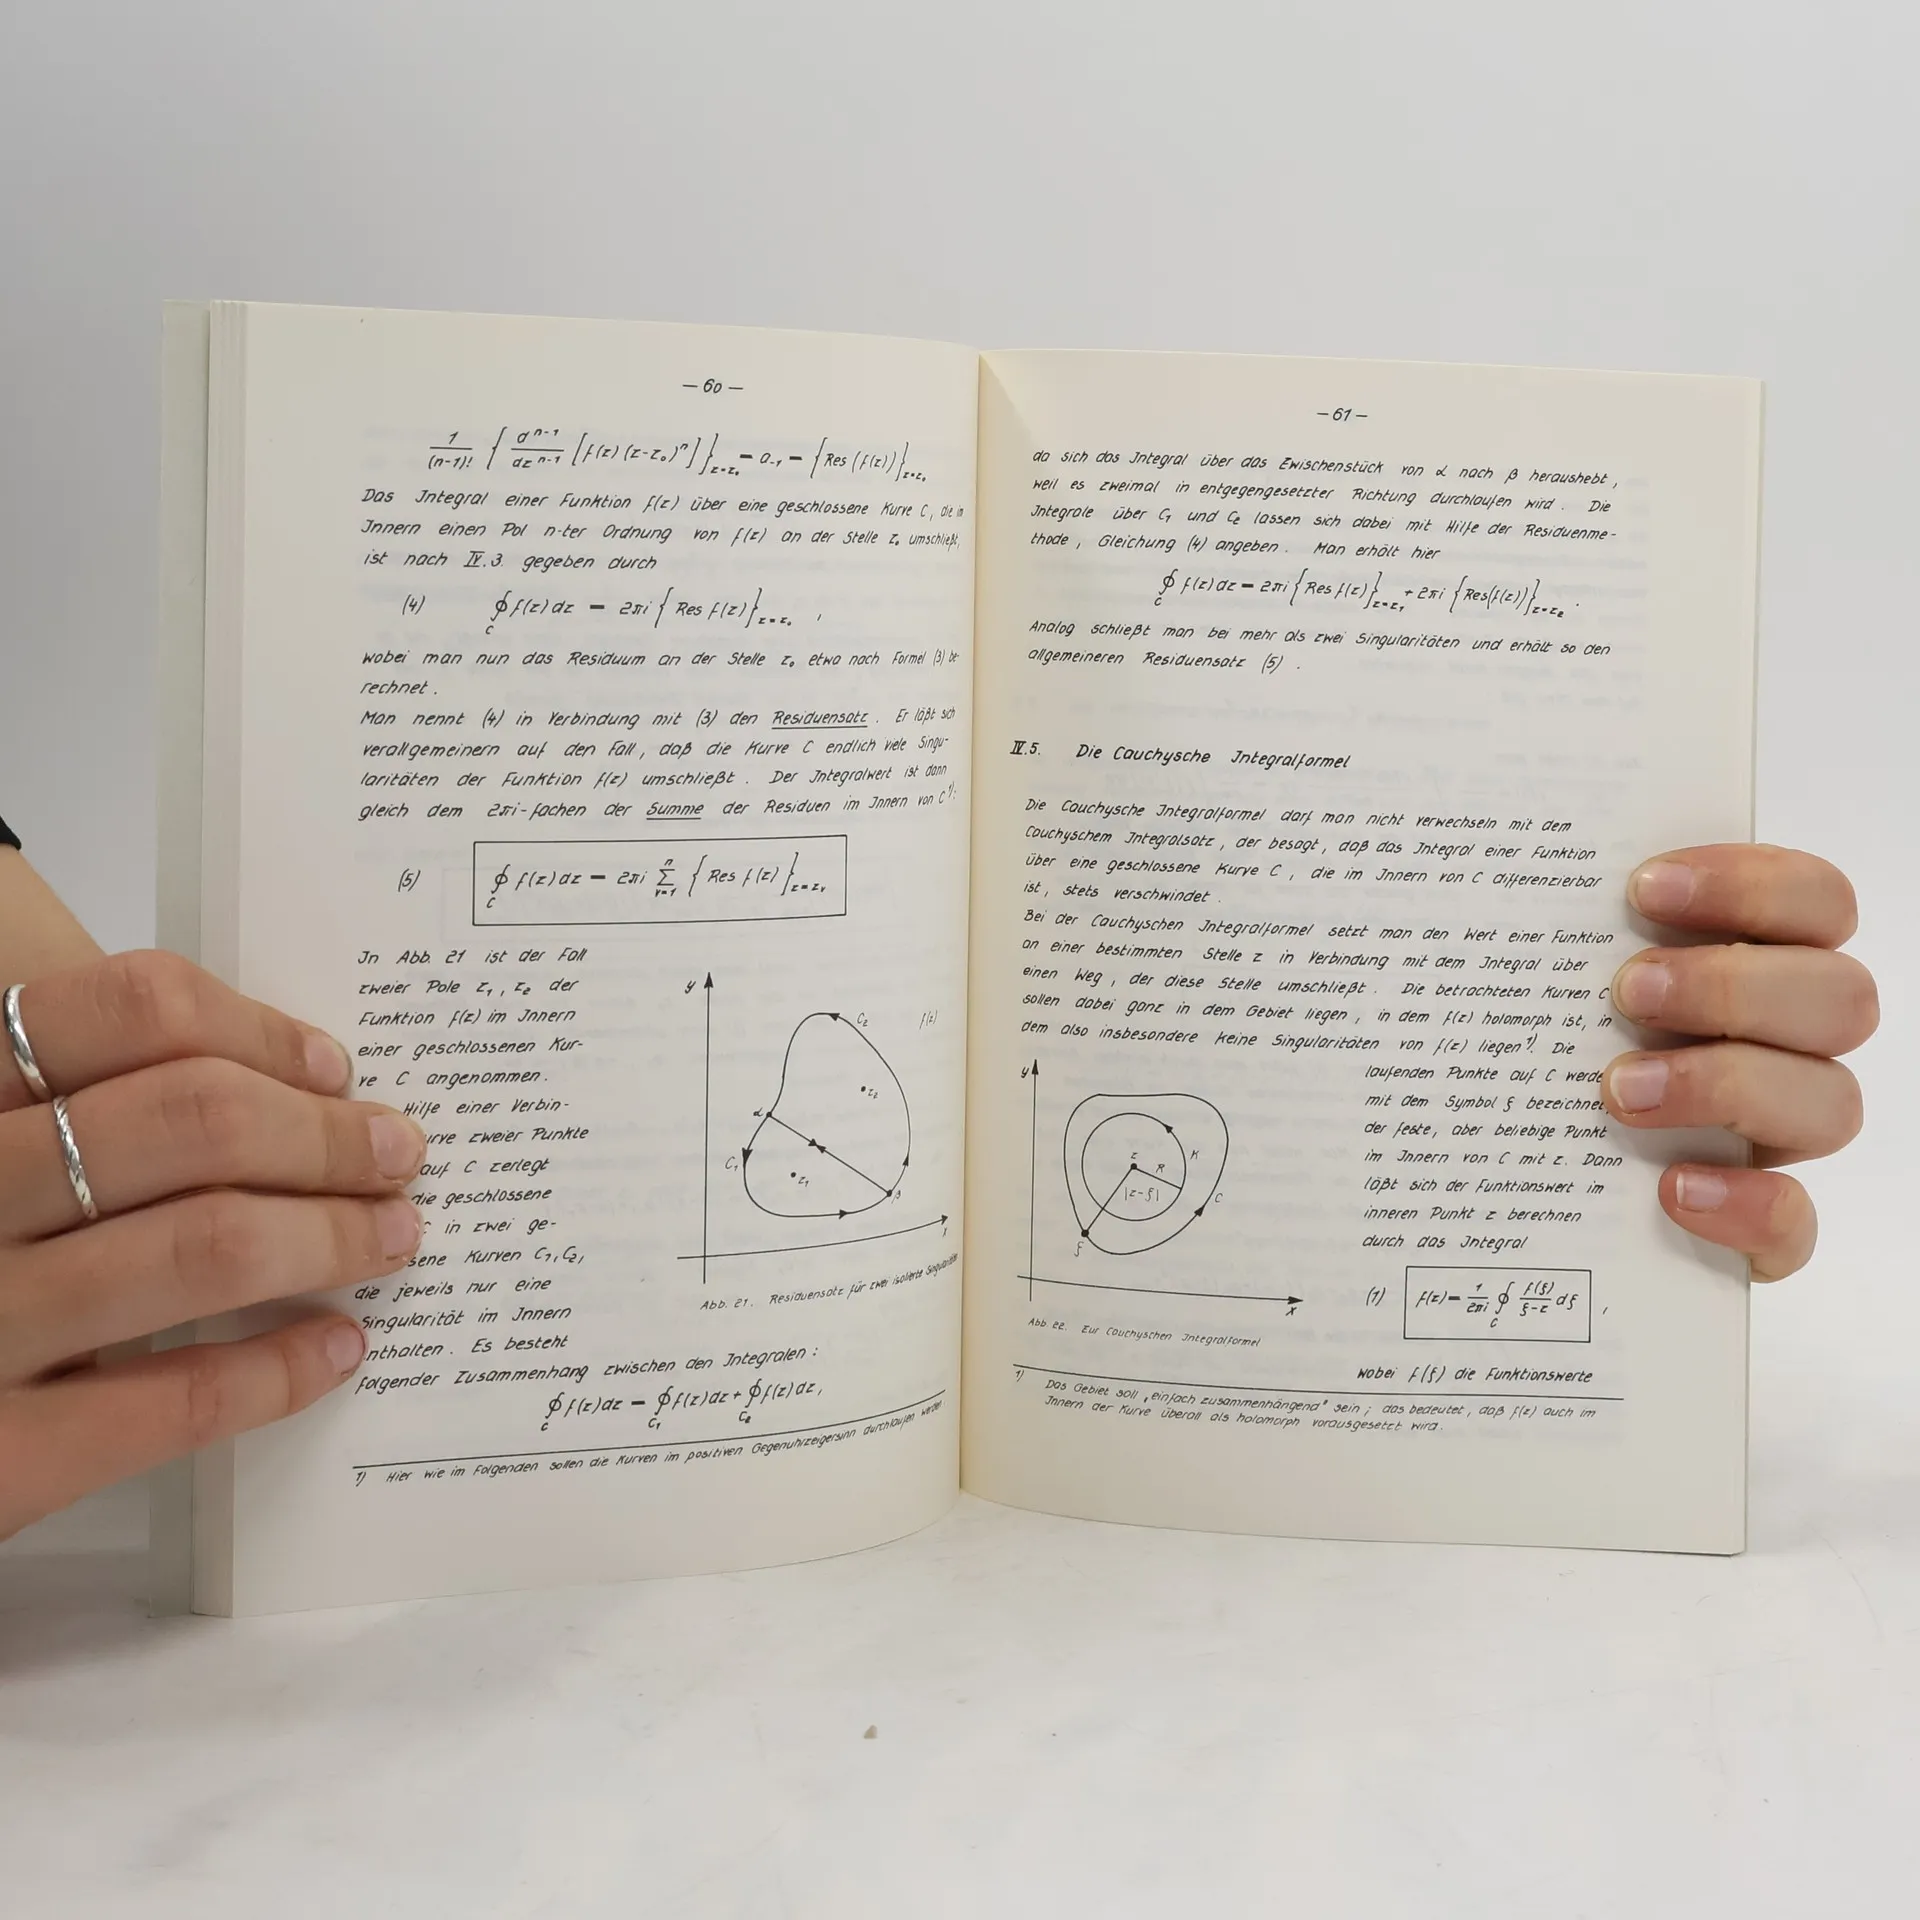 — 60 —
1/(n-1)! { d^(n-1)/dz^(n-1) [f(z)(z-z₀)ⁿ] }_(z=z₀) = a₋₁ = { Res (f(z)) }_(z=z₀)
Das Integral einer Funktion f(z) über eine geschlossene Kurve C, die im
Innern einen Pol n-ter Ordnung von f(z) an der Stelle z₀ umschließt,
ist nach IV.3. gegeben durch
(4) ∮_C f(z) dz = 2πi { Res f(z) }_(z=z₀) ,
wobei man nun das Residuum an der Stelle z₀ etwa nach Formel (3) be-
rechnet.
Man nennt (4) in Verbindung mit (3) den Residuensatz. Er läßt sich
verallgemeinern auf den Fall, daß die Kurve C endlich viele Singu-
laritäten der Funktion f(z) umschließt. Der Integralwert ist dann
gleich dem 2πi-fachen der Summe der Residuen im Innern von C ¹⁾:
(5) ∮_C f(z) dz = 2πi Σ_(ν=1)^n { Res f(z) }_(z=z_ν)
In Abb. 21 ist der Fall
zweier Pole z₁, z₂ der
Funktion f(z) im Innern
einer geschlossenen Kur-
ve C angenommen.
Hilfe einer Verbin-
urve zweier Punkte
auf C zerlegt
die geschlossene
C in zwei ge-
sene Kurven C₁, C₂,
die jeweils nur eine
Singularität im Innern
nthalten. Es besteht
y
C₂
f(z)
z₂
α
C₁
z₁
β
x
Abb. 21. Residuensatz für zwei isolierte Singularitäten
folgender Zusammenhang zwischen den Integralen:
∮_C f(z) dz = ∮_C₁ f(z) dz + ∮_C₂ f(z) dz,
1) Hier wie im Folgenden sollen die Kurven im positiven Gegenuhrzeigersinn durchlaufen werden
— 61 —
da sich das Integral über das Zwischenstück von α nach β heraushebt,
weil es zweimal in entgegengesetzter Richtung durchlaufen wird. Die
Integrale über C₁ und C₂ lassen sich dabei mit Hilfe der Residuenme-
thode, Gleichung (4) angeben. Man erhält hier
∮_C f(z) dz = 2πi { Res f(z) }_(z=z₁) + 2πi { Res(f(z)) }_(z=z₂) .
Analog schließt man bei mehr als zwei Singularitäten und erhält so den
allgemeineren Residuensatz (5).
IV.5. Die Cauchysche Integralformel
Die Cauchysche Integralformel darf man nicht verwechseln mit dem
Cauchyschem Integralsatz, der besagt, daß das Integral einer Funktion
über eine geschlossene Kurve C, die im Innern von C differenzierbar
ist, stets verschwindet.
Bei der Cauchyschen Integralformel setzt man den Wert einer Funktion
an einer bestimmten Stelle z in Verbindung mit dem Integral über
einen Weg, der diese Stelle umschließt. Die betrachteten Kurven C
sollen dabei ganz in dem Gebiet liegen, in dem f(z) holomorph ist, in
dem also insbesondere keine Singularitäten von f(z) liegen ¹⁾. Die
y
z
R
K
|z-ξ|
C
ξ
x
Abb. 22. Zur Cauchyschen Integralformel
laufenden Punkte auf C werde
mit dem Symbol ξ bezeichnet,
der feste, aber beliebige Punkt
im Innern von C mit z. Dann
läßt sich der Funktionswert im
inneren Punkt z berechnen
durch das Integral
(1) f(z) = 1/(2πi) ∮_C f(ξ)/(ξ-z) dξ ,
wobei f(ξ) die Funktionswerte
1) Das Gebiet soll „einfach zusammenhängend" sein; das bedeutet, daß f(z) auch im
Innern der Kurve überall als holomorph vorausgesetzt wird.